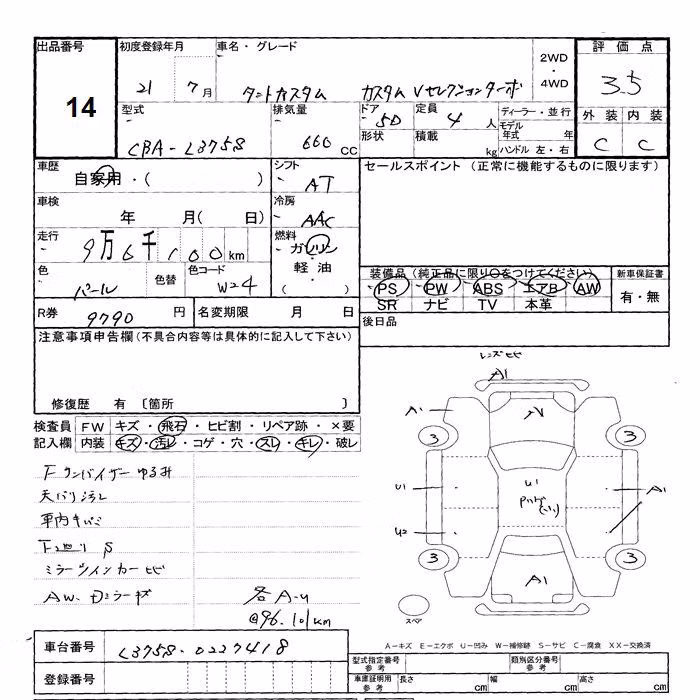 出品番号 初度登録年月 車名・グレード 2WD・4WD 評価点
14 21 7月 タントカスタム カスタムVセレクションターボ 3.5
型式 排気量 ドア 定員 ディーラー・並行 外装 内装
CBA-L375S 660 CC 5D 4人 モデル年式 年 C C
形状 積載 kg ハンドル 左・右
車歴 自家用・( ) シフト AT セールスポイント (正常に機能するものに限ります)
車検 年 月( 日) 冷房 AAC
走行 9万6千100km 燃料 ガソリン・軽油・( )
色 パール 色替 色コード W24
装備品 (純正品に限り○をつけてください) 新車保証書
PS PW ABS エアB AW 有・無
SR ナビ TV 本革
R券 9790円 名変期限 月 日 後日品
注意事項申告欄(不具合内容等は具体的に記入して下さい)
修復歴 有 〔箇所 〕
検査員記入欄 FW キズ・飛石・ヒビ割・リペア跡・×要
内装 キズ・汚レ・コゲ・穴・スレ・キレ・破レ
天バリ汚レ
車内キバミ
ミラーウインカーヒビ
各A-U
@96.101km
レンズヒビ
A1
A1
3 3
U1 U1 A1
U2
3 3
A1
スペア
A-キズ E-エクボ U-凹み W-補修跡 S-サビ C-腐食 XX-交換済
車台番号 L375S-0227418
登録番号
型式指定番号 参考 類別区分番号 参考
車庫証明用 参考 長さ cm 幅 cm 高さ cm